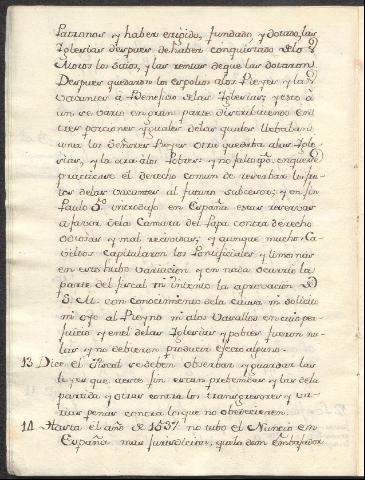 Patronos y haber erigido, fundado, y dotado las
Iglesias despues de haber conquistado de los
Moros los sitios, y las rentas de que las dotaron.
Despues quedaron los espolios a los Reyes y las
vacantes a Beneficio de las Iglesias; y esto a
un se vario en gran parte distribuiendo en
tres porciones yguales de las quales llebaban
una los Señores Reyes otra quedaba a las Igle-
sias, y la otra a los Pobres: y no falto en que se
practicase el derecho comun de reserbar los fru-
tos de las vacantes al futuro subcesor; y en fin
Paulo 3º introdujo en España estas reservas
a favor de la Camara del Papa contra derecho
odiosas y mal recividas; y aunque muchos Ca-
vildos capitularon los Pontificiales y limosnas
en esto hubo variacion y en nada ocurrio la
parte del fiscal ni intento la aprovacion de
S. M. con conocimiento de la causa ni solicito
ni oyo al Reyno ni a los Vasallos en cuio per-
juicio y en el de las Iglesias y pobres fueron nu-
las y no debieron producir efecto alguno.
13 Dice el Fiscal se deben obserbar y guardar las
leyes que acerca sin estan prebenidas y las de la
partida y otras contra los transgresores y va-
rias penas contra los que no obedecieren.
14 Hasta el año de 1537 no tubo el Nuncio en
España mas jurisdicion, que la de un embajador